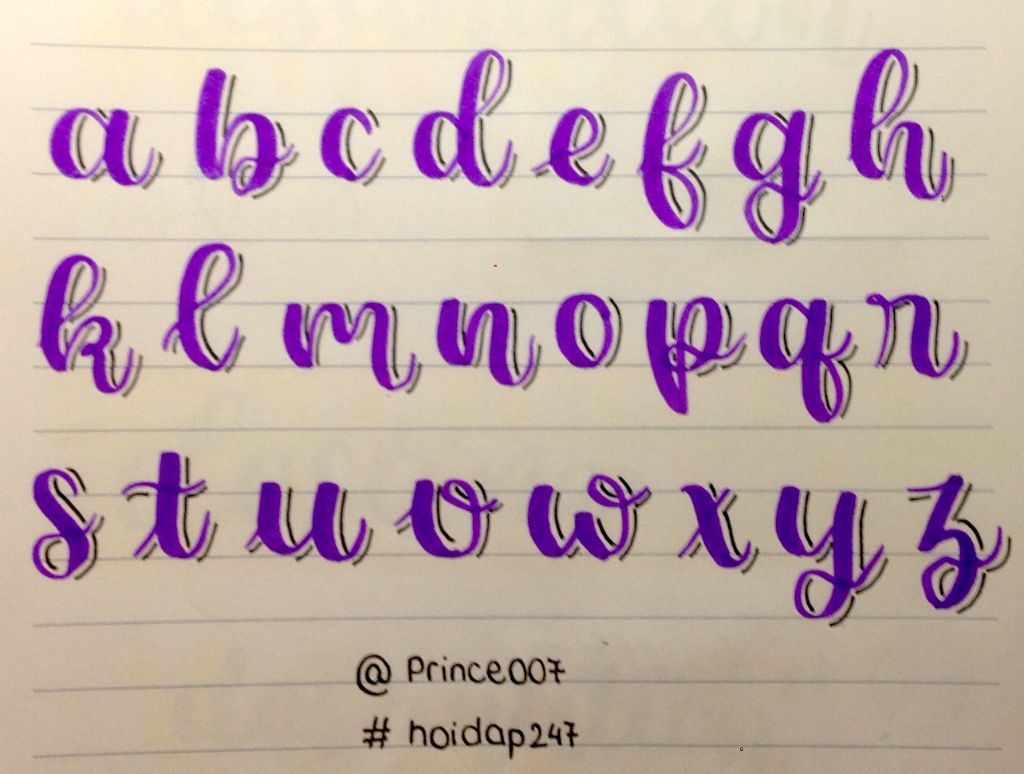 a b c d e f g h
k l m n o p q r
s t u v w x y z
@ Prince007
# hoidap247